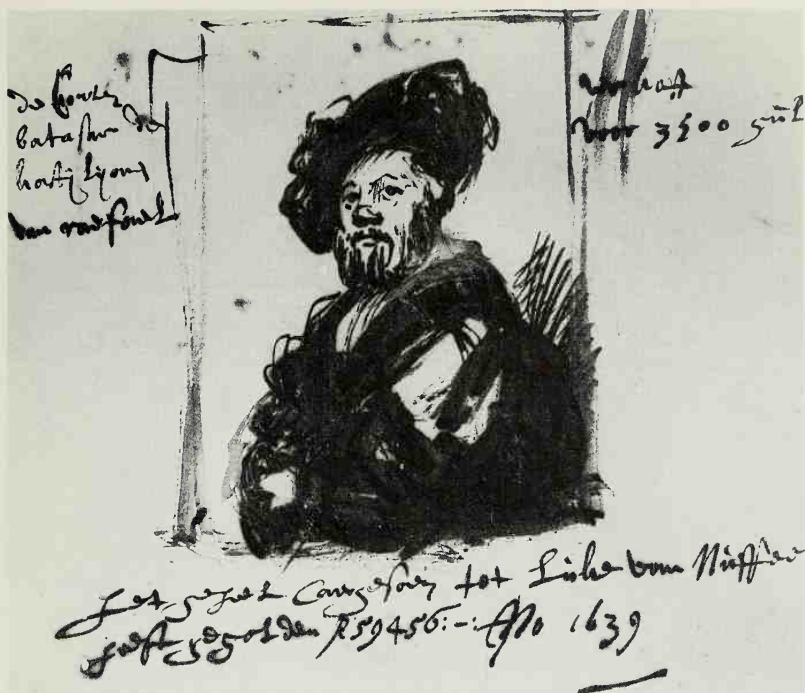 de Conte
batasar de
kastijlyone
van rafael
verkoft
voor 3500 gul
het geheel Caergesoen tot Luke van Nuffee
heeft gegolden f59456:-: Ano 1639